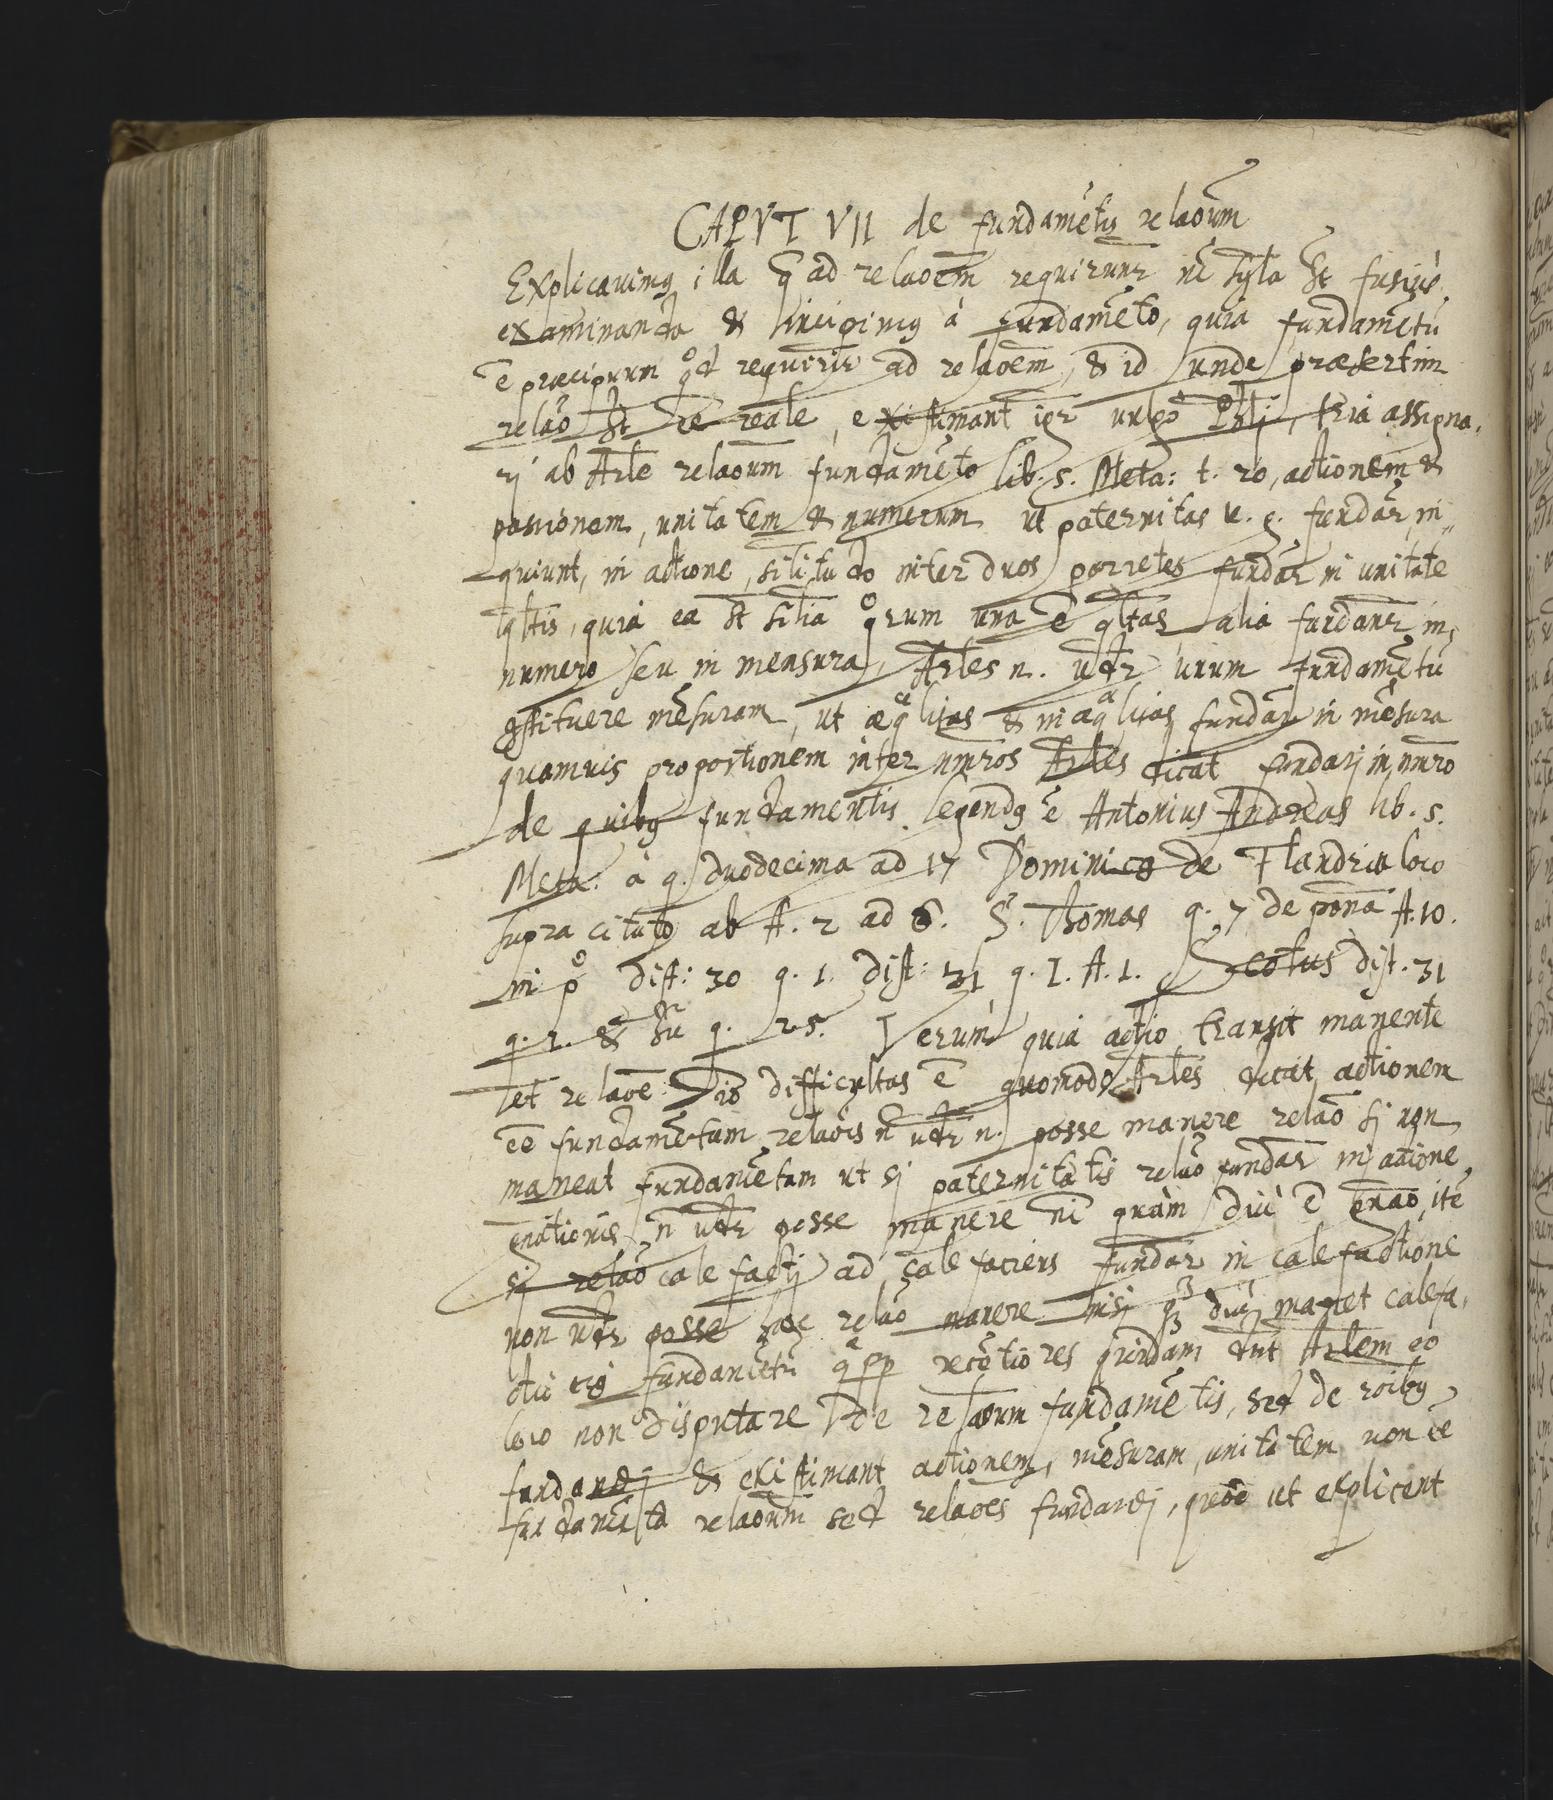 CAPVT VII de fundamẽtis relaoũm
Explicauimus illa q̃ ad relaoẽm requirunr nc̃ sũt fusius
examinanda & incipimus à fundamẽto, quia fundamẽtũ
ẽ præcipuum qd requirir ad relaoẽm, & id unde præsertim
relaõ ht ẽe reale, existimant igr uulgo Phi tria assigna-
ri ab Arle relaoum fundamẽto lib. 5. Meta: t. 20, actionem &
passionem, unitatem & numerum ut paternitas u. g. fundar, in-
quiunt, in actione, silitudo inter duos parietes fundar in unitate
qltis, quia ea st silia qrum una ẽ qltas, alia fundanr in
numero seu in mensura, Arles n. udr unum fundamẽtũ
gstituere mẽsuram, ut æqlitas & inæqlitas fundar in mẽsura
quamuis proportionem inter nmros Arles dicat fundari in nmro
de quibus fundamentis legendus ẽ Antonius Andreas lib. 5.
Meta. à q. duodecima ad 17 Dominicus de Flandria loco
supra citato ab A. 2 ad 6. S. Thomas q. 7 de pona A. 10.
in po dist: 30 q. 1. dist: 31 q. 1. A. 1. Scotus dist. 31
q. 1. & q. 25. Verum quia actio transit manente
relaoẽ. difficultas ẽ quomodo Arles dicat actionem
ẽe fundamẽtum relaois n udr n. posse manere relaõ si non
maneat fundamẽtum ut si paternitatis relaõ fundar in actione
n udr posse manere ni quàm diù ẽ itẽ
si relaõ calefacti ad calefaciens fundar in calefactione
non udr posse hæc relaõ manere nisi diu manet calefa-
ctio fundamẽtũ recẽtiores quidam dnt Arlem eo
loco non disputare de relaoum fundamẽtis, sed de roibus
fundandi & existimant actionem, mẽsuram, unitatem non ẽe
fundamẽta relaoum sed relaoes fundandi, ut explicent